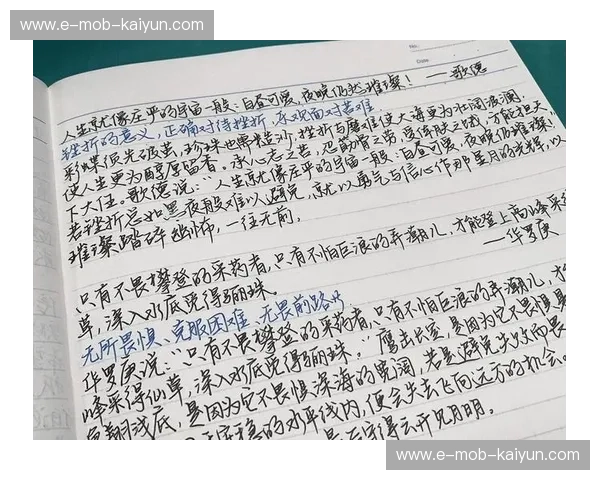 www.e-mob-kaiyun.com
No:
Date:
人生就像庄严的宇宙一般:白昼可爱,夜晚仍然璀璨! ——歌德
挫折的意义,正确对待挫折,乐观面对苦难
彩蝶须先破茧,珍珠也需粒沙,挫折与磨难使大海更为壮阔波澜,
使人生更为醇厚留香。承心志之苦,忍筋骨之劳,履体肤之饿,方能担天
下大任。歌德说:“人生就像庄严的宇宙一般:白昼可爱,夜晚仍璀璨!”
若挫折总如黑夜般难以避免,就以勇气与信心作那星月的光辉,以
璀璨踏碎幽怖,一往无前。
只有不畏攀登的采药者,只有不怕巨浪的弄潮儿,才能登上高峰采
草,深入水底觅得骊珠。 ——华罗庚
无所畏惧、克服困难、无畏前路
华罗庚说:“只有不畏攀登的采药者,只有不怕巨浪的弄潮儿,才
峰采得仙草,深入水底觅得骊珠。”鹰出长空,是因为它不畏惧
翱浅底,是因为它不畏惧深海的宽阔,若是避免失败而畏
安稳的水平线内,便会失去飞向远方的机会。
守得云开见月明。
www.e-mob-kaiyun.com